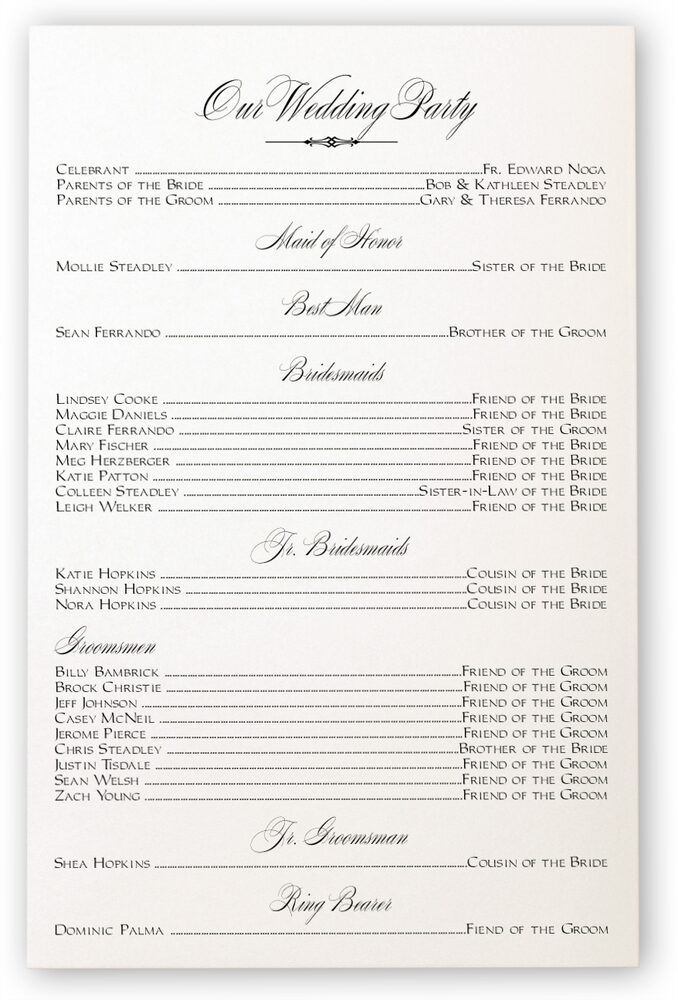 Our Wedding Party
Celebrant ........ Fr. Edward Noga
Parents of the Bride ........ Bob & Kathleen Steadley
Parents of the Groom ........ Gary & Theresa Ferrando
Maid of Honor
Mollie Steadley ........ Sister of the Bride
Best Man
Sean Ferrando ........ Brother of the Groom
Bridesmaids
Lindsey Cooke ........ Friend of the Bride
Maggie Daniels ........ Friend of the Bride
Claire Ferrando ........ Sister of the Groom
Mary Fischer ........ Friend of the Bride
Meg Herzberger ........ Friend of the Bride
Katie Patton ........ Friend of the Bride
Colleen Steadley ........ Sister-in-Law of the Bride
Leigh Welker ........ Friend of the Bride
Jr. Bridesmaids
Katie Hopkins ........ Cousin of the Bride
Shannon Hopkins ........ Cousin of the Bride
Nora Hopkins ........ Cousin of the Bride
Groomsmen
Billy Bambrick ........ Friend of the Groom
Brock Christie ........ Friend of the Groom
Jeff Johnson ........ Friend of the Groom
Casey McNeil ........ Friend of the Groom
Jerome Pierce ........ Friend of the Groom
Chris Steadley ........ Brother of the Bride
Justin Tisdale ........ Friend of the Groom
Sean Welsh ........ Friend of the Groom
Zach Young ........ Friend of the Groom
Jr. Groomsman
Shea Hopkins ........ Cousin of the Bride
Ring Bearer
Dominic Palma ........ Fiend of the Groom